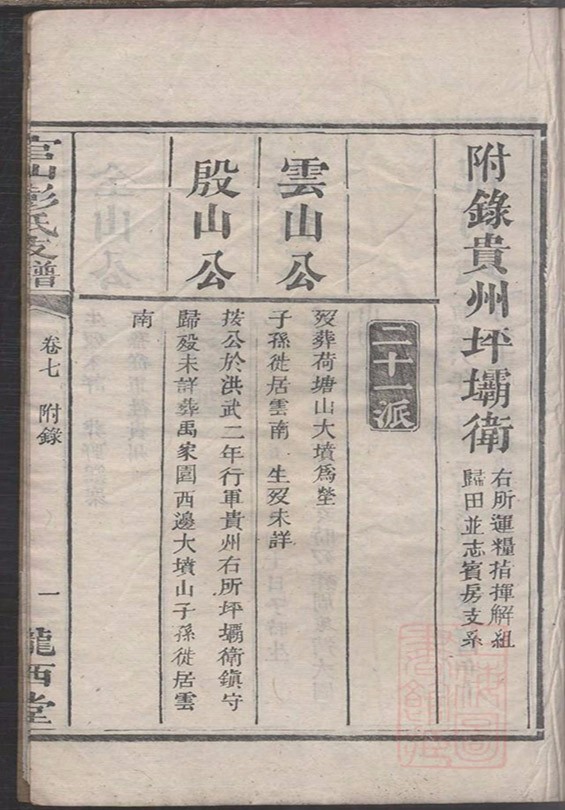 附錄貴州坪壩衛
右所運糧指揮解組
歸田並志賓房支系
二十一派
雲山公
歿葬荷塘山大墳為塋
子孫徙居雲南 生歿未詳
殷山公
按公於洪武二年行軍貴州右所坪壩衛鎮守
歸殁未詳葬禹家園西邊大墳山子孫徙居雲
南
官山彭氏支譜
卷七 附錄
一
隴西堂